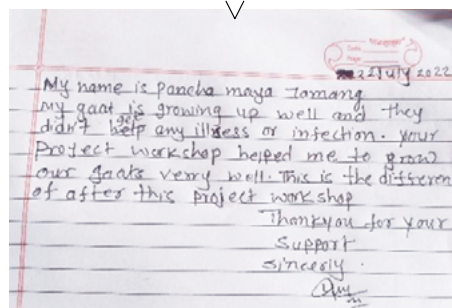 22 July 2022
My name is pancha maya Tamang
My goat is growing up well and they
didn't get any illness or infection. Your
Project workshop helped me to grow
our goats verry well. This is the differen
of after this project work shop
Thankyou for your
Support
sincerly.